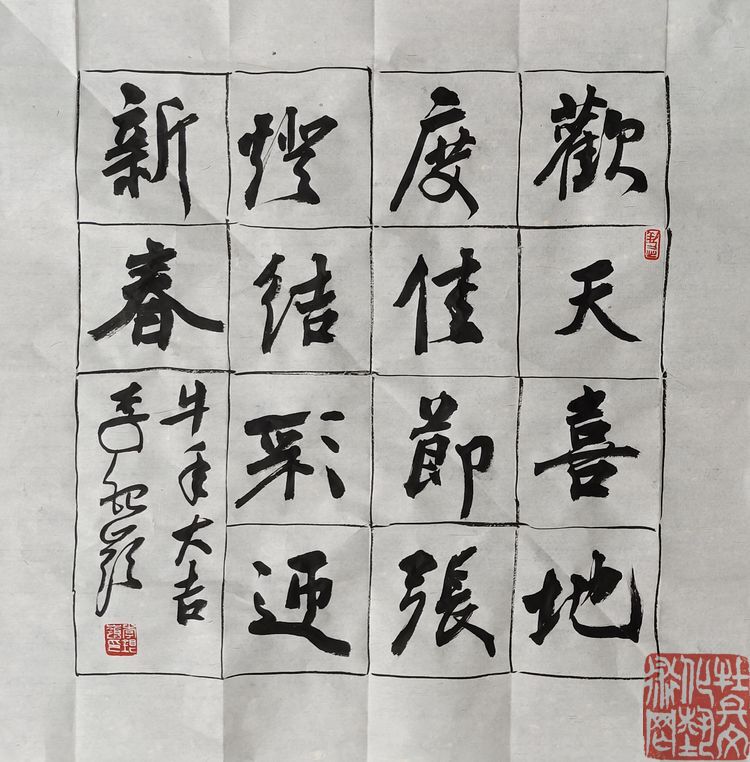 歡天喜地
度佳節張
燈結彩迎
新春
牛年大吉
李